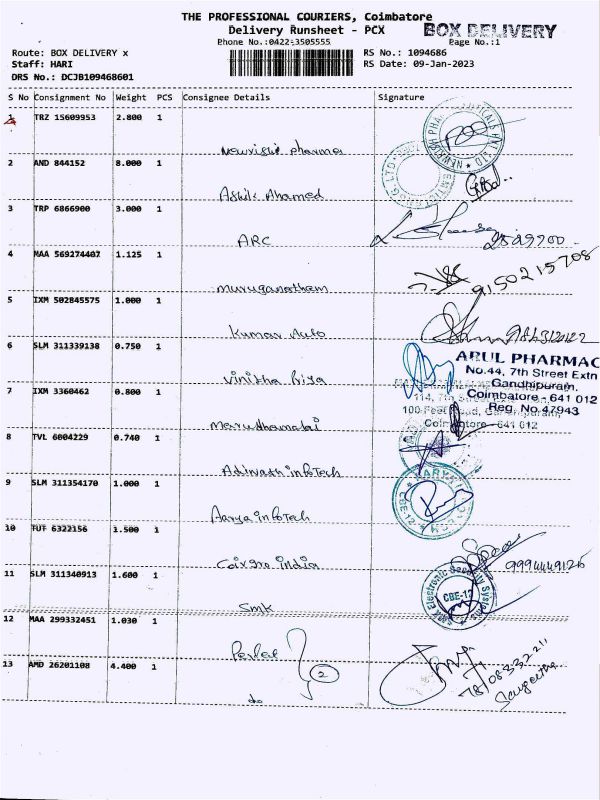 THE PROFESSIONAL COURIERS, Coimbatore
Delivery Runsheet - PCX
BOX DELIVERY
Phone No.:0422-3505555
Page No.:1
Route: BOX DELIVERY x
RS No.: 1094686
Staff: HARI
RS Date: 09-Jan-2023
DRS No.: DCJB109468601
S No Consignment No Weight PCS Consignee Details Signature
1 TRZ 15609953 2.800 1
Newrishi pharma
2 AND 844152 8.000 1
Ashik Ahamed
3 TRP 6866900 3.000 1
ARC
4 MAA 569274407 1.125 1
muruganatham
9150215708
5 IXM 502845575 1.000 1
Kumar Auto
6 SLM 311339138 0.750 1
Vinitha Riya
ARUL PHARMAC
No.44, 7th Street Extn
Gandhipuram,
Coimbatore - 641 012
Reg. No.47943
7 IXM 3360462 0.800 1
114, 7th Street
100 Feet Road, Gandhipuram,
Coimbatore - 641 012
Marudhamalai
8 TVL 6004229 0.740 1
Adinath infoTech
9 SLM 311354170 1.000 1
Aarya infoTech
CBE-12
10 TUT 6322156 3.500 1
India
9994449126
11 SLM 311340913 1.600 1
SMK
SMK Electronic Security Systems
CBE-12
12 MAA 299332451 1.030 1
2
13 AMD 26201108 4.400 1
do
Sangeetha